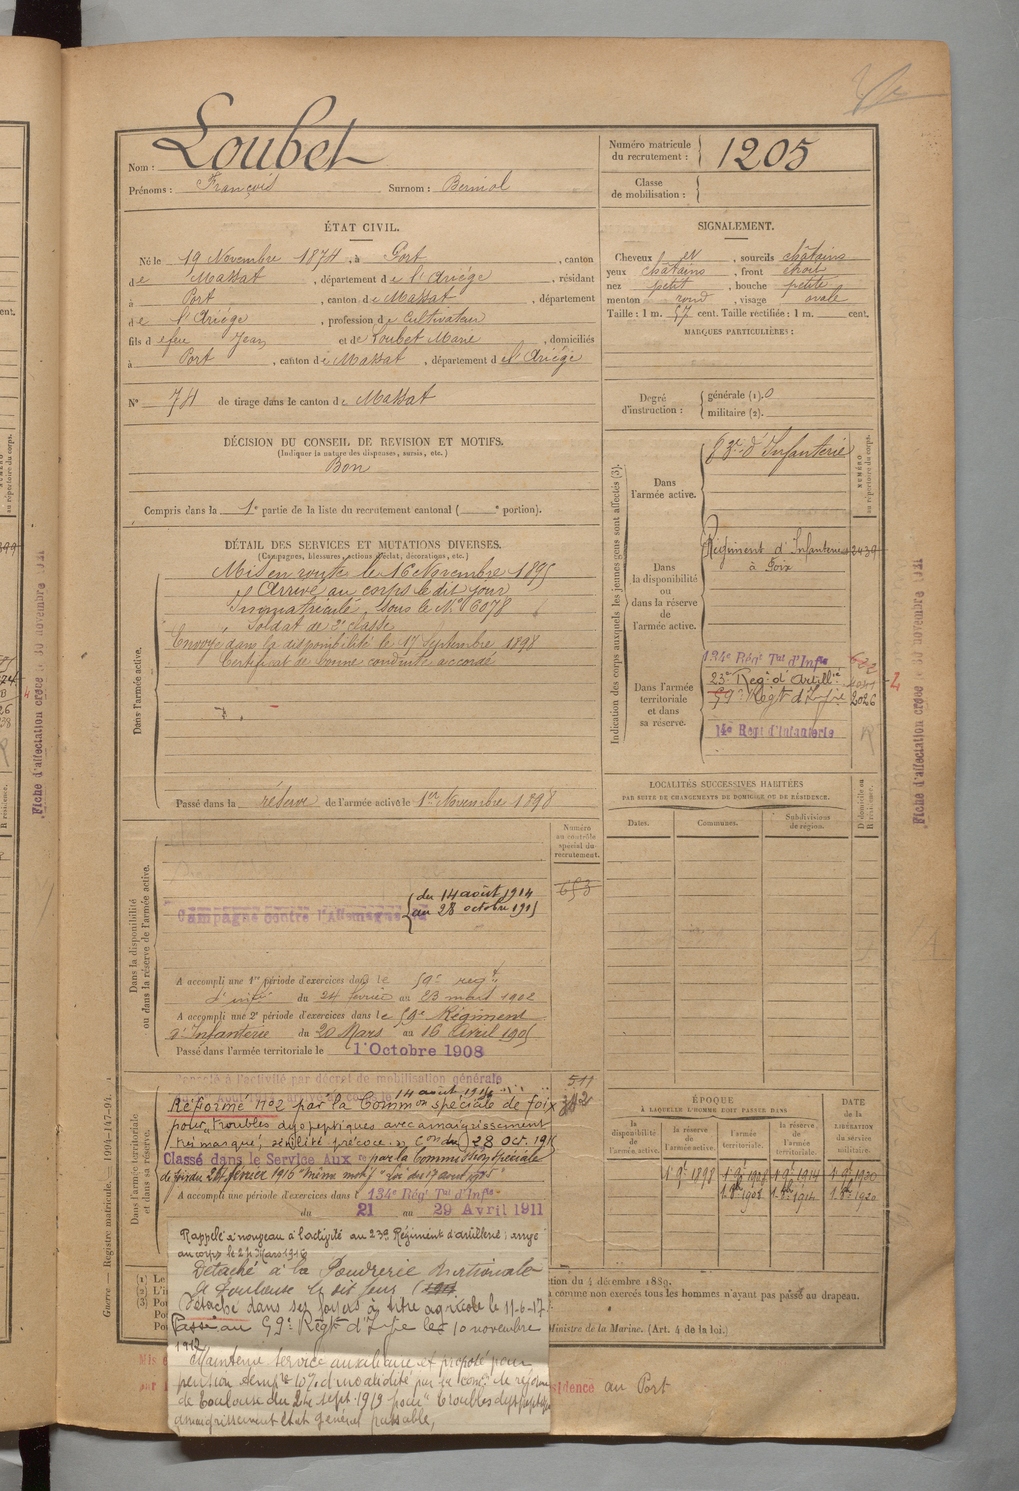 Nom : Loubet
Prénoms : François Surnom : Berniol
Numéro matricule du recrutement : 1205
Classe de mobilisation :
ÉTAT CIVIL.
Né le 19 Novembre 1874, à Port, canton
de Massat, département de l'Ariège, résidant
à Port, canton de Massat, département
de l'Ariège, profession de Cultivateur
fils d efeu Jean et de Loubet Marie, domiciliés
à Port, canton de Massat, département de l'Ariège
N° 74 de tirage dans le canton de Massat
SIGNALEMENT.
Cheveux et, sourcils châtains
yeux châtains, front étroit
nez petit, bouche petite
menton rond, visage ovale
Taille : 1 m. 57 cent. Taille rectifiée : 1 m. cent.
MARQUES PARTICULIÈRES :
Degré d'instruction : générale (1). 0
militaire (2).
DÉCISION DU CONSEIL DE REVISION ET MOTIFS.
(Indiquer la nature des dispenses, sursis, etc.)
Bon
Compris dans la 1e partie de la liste du recrutement cantonal ( e portion).
DÉTAIL DES SERVICES ET MUTATIONS DIVERSES.
(Campagnes, blessures, actions d'éclat, décorations, etc.)
Dans l'armée active.
Mis en route le 16 Novembre 1895
Arrivé au corps le dit jour
Immatriculé sous le N° 6078
Soldat de 2e classe
Envoyé dans la disponibilité le 17 Septembre 1898
Certificat de bonne conduite accordé
Passé dans la réserve de l'armée active le 1er Novembre 1898
Indication des corps auxquels les jeunes gens sont affectés (3).
NUMÉRO au répertoire du corps.
Dans l'armée active.
d'Infanterie
Dans la disponibilité ou dans la réserve de l'armée active.
Régiment d'Infanterie 2439
à Foix
Dans l'armée territoriale et dans sa réserve.
134e Régt Tal d'Infie
23e Régt d'Artillie
59e Régt d'Infie 2026
14e Regt d'Infanterie
Fiche d'affectation créée le 30 novembre
LOCALITÉS SUCCESSIVES HABITÉES
PAR SUITE DE CHANGEMENTS DE DOMICILE OU DE RÉSIDENCE.
Dates. Communes. Subdivisions de région. D domicile ou R résidence.
Dans la disponibilité ou dans la réserve de l'armée active.
Numéro au contrôle spécial du recrutement.
653
Campagne contre l'Allemagne du 14 août 1914
au 28 octobre 1915
A accompli une 1re période d'exercices dans le 59e regt
d'infie du 24 février au 23 mars 1902
A accompli une 2e période d'exercices dans le 59e Régiment
d'Infanterie du 20 Mars au 16 avril 1905
Passé dans l'armée territoriale le 1 Octobre 1908
Dans l'armée territoriale et dans sa réserve.
Rappelé à l'activité par décret de mobilisation générale
14 août 1914
511
Réformé N°2 par la Common spéciale de foix
pour troubles dyspeptiques avec amaigrissement
très marqué, sénilité précoce, Con du 28 oct. 1915
Classé dans le Service Auxre par la Commission spéciale
de foix du février 1916 même motif Loi du 17 août 1915
A accompli une période d'exercices dans le 134e Régt Tal d'Infie
du 21 au 29 Avril 1911
ÉPOQUE
À LAQUELLE L'HOMME DOIT PASSER DANS
la disponibilité de l'armée active. la réserve de l'armée active. l'armée territoriale. la réserve de l'armée territoriale.
DATE de la LIBÉRATION du service militaire.
1.9bre 1898 1.9bre 1908 1.9bre 1914 1.9bre 1920
1.8bre 1908 1.8bre 1914 1.8bre 1920
Rappelé à nouveau à l'activité au 23e Régiment d'artillerie ; arrivé
au corps le Mars 1916
Détaché à la Poudrerie Nationale
de Toulouse le dit jour
Détaché dans ses foyers à titre agricole le 11-6-17.
Passé au 59e Régt d'Infie le 10 novembre
Maintenu Service auxiliaire et proposé pour
pension tempre 10% d'invalidité par la comon de réforme
de Toulouse du 24 sept. 1919 pour "troubles dyspeptiques
amaigrissement état général passable,
(1) Le
(2) L'i
(3) Po
tion du 4 décembre 1889.
comme non exercés tous les hommes n'ayant pas passé au drapeau.
Ministre de la Marine. (Art. 4 de la loi.)
idence au Port
Guerre. — Registre matricule. — 1994-147-94.